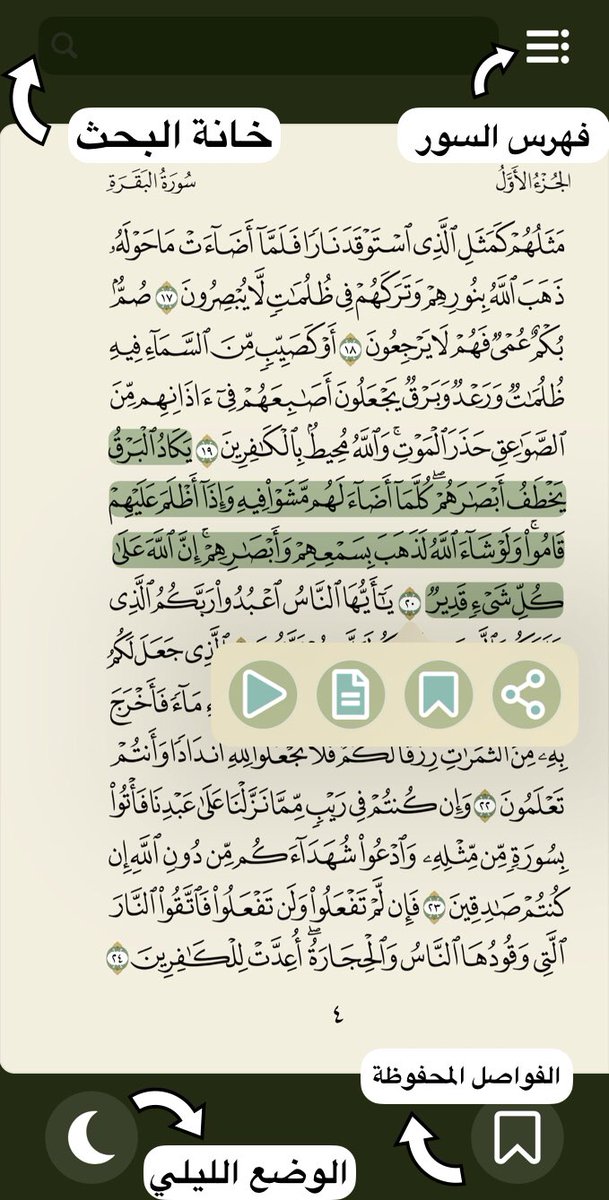 فهرس السور
خانة البحث
الجُزْءُ الأَوَّلُ
سُورَةُ البَقَرَةِ
مَثَلُهُمْ كَمَثَلِ ٱلَّذِى ٱسْتَوْقَدَ نَارًا فَلَمَّآ أَضَآءَتْ مَا حَوْلَهُۥ
ذَهَبَ ٱللَّهُ بِنُورِهِمْ وَتَرَكَهُمْ فِى ظُلُمَٰتٍ لَّا يُبْصِرُونَ ١٧ صُمٌّۢ
بُكْمٌ عُمْىٌ فَهُمْ لَا يَرْجِعُونَ ١٨ أَوْ كَصَيِّبٍ مِّنَ ٱلسَّمَآءِ فِيهِ
ظُلُمَٰتٌ وَرَعْدٌ وَبَرْقٌ يَجْعَلُونَ أَصَٰبِعَهُمْ فِىٓ ءَاذَانِهِم مِّنَ
ٱلصَّوَٰعِقِ حَذَرَ ٱلْمَوْتِ ۚ وَٱللَّهُ مُحِيطٌۢ بِٱلْكَٰفِرِينَ ١٩ يَكَادُ ٱلْبَرْقُ
يَخْطَفُ أَبْصَٰرَهُمْ ۖ كُلَّمَآ أَضَآءَ لَهُم مَّشَوْا۟ فِيهِ وَإِذَآ أَظْلَمَ عَلَيْهِمْ
قَامُوا۟ ۚ وَلَوْ شَآءَ ٱللَّهُ لَذَهَبَ بِسَمْعِهِمْ وَأَبْصَٰرِهِمْ ۚ إِنَّ ٱللَّهَ عَلَىٰ
كُلِّ شَىْءٍ قَدِيرٌ ٢٠ يَٰٓأَيُّهَا ٱلنَّاسُ ٱعْبُدُوا۟ رَبَّكُمُ ٱلَّذِى
ٱلَّذِى جَعَلَ لَكُمُ
مَآءً فَأَخْرَجَ
بِهِۦ مِنَ ٱلثَّمَرَٰتِ رِزْقًا لَّكُمْ ۖ فَلَا تَجْعَلُوا۟ لِلَّهِ أَندَادًا وَأَنتُمْ
تَعْلَمُونَ ٢٢ وَإِن كُنتُمْ فِى رَيْبٍ مِّمَّا نَزَّلْنَا عَلَىٰ عَبْدِنَا فَأْتُوا۟
بِسُورَةٍ مِّن مِّثْلِهِۦ وَٱدْعُوا۟ شُهَدَآءَكُم مِّن دُونِ ٱللَّهِ إِن
كُنتُمْ صَٰدِقِينَ ٢٣ فَإِن لَّمْ تَفْعَلُوا۟ وَلَن تَفْعَلُوا۟ فَٱتَّقُوا۟ ٱلنَّارَ
ٱلَّتِى وَقُودُهَا ٱلنَّاسُ وَٱلْحِجَارَةُ ۖ أُعِدَّتْ لِلْكَٰفِرِينَ ٢٤
٤
الفواصل المحفوظة
الوضع الليلي